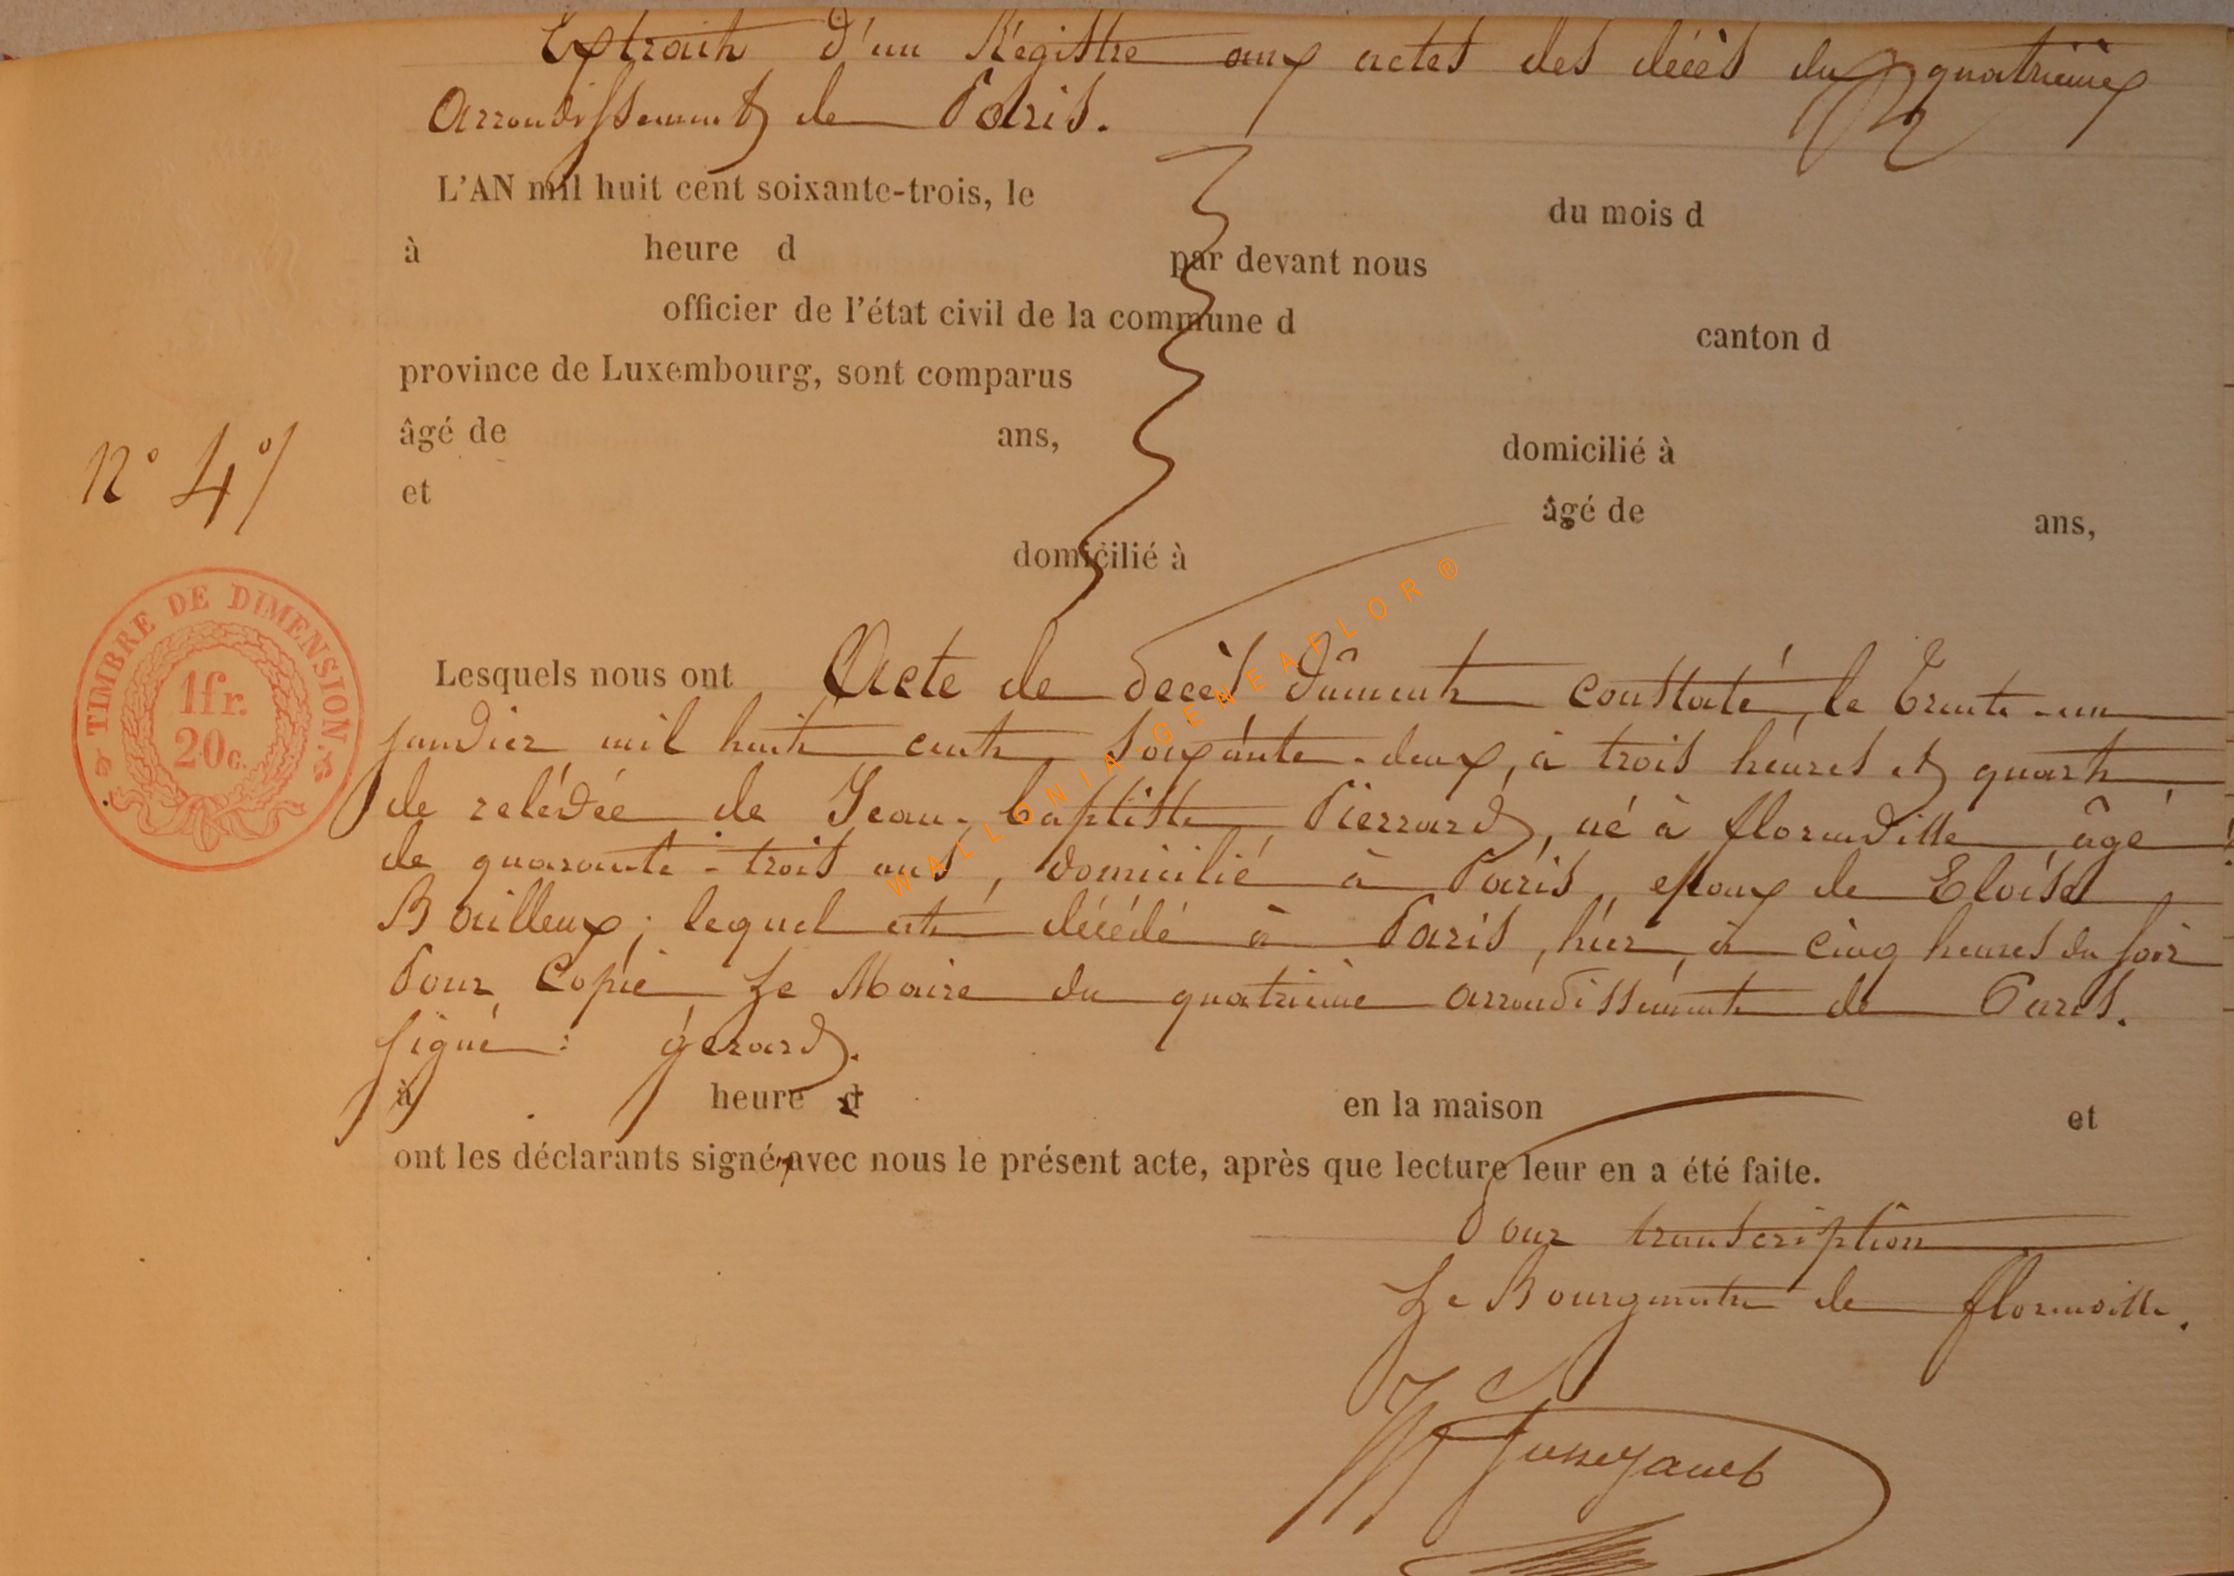 Extrait d'un Régistre aux actes des décès du quatrième
Arrondissement de Paris.
L'AN mil huit cent soixante-trois, le du mois d
à heure d par devant nous
officier de l'état civil de la commune d canton d
province de Luxembourg, sont comparus
âgé de ans, domicilié à
et âgé de ans,
domicilié à
N° 4
TIMBRE DE DIMENSION.
1fr.
20c.
Lesquels nous ont Acte de décès dûment constaté, le trente-un
janvier mil huit cent soixante-deux, à trois heures et quart
de relévée de Jean-Baptiste Pierrard, né à florenville âgé
de quarante-trois ans, domicilié à Paris, époux de Eloïse
Bouilleux; lequel est décédé à Paris, hier, à cinq heures du soir
Pour Copie Le Maire du quatrième arrondissement de Paris.
signé: gérard.
à heure d en la maison et
ont les déclarants signé avec nous le présent acte, après que lecture leur en a été faite.
Pour transcription
Le Bourgmestre de florenville.
WALLONIA-GENEAFLOR®